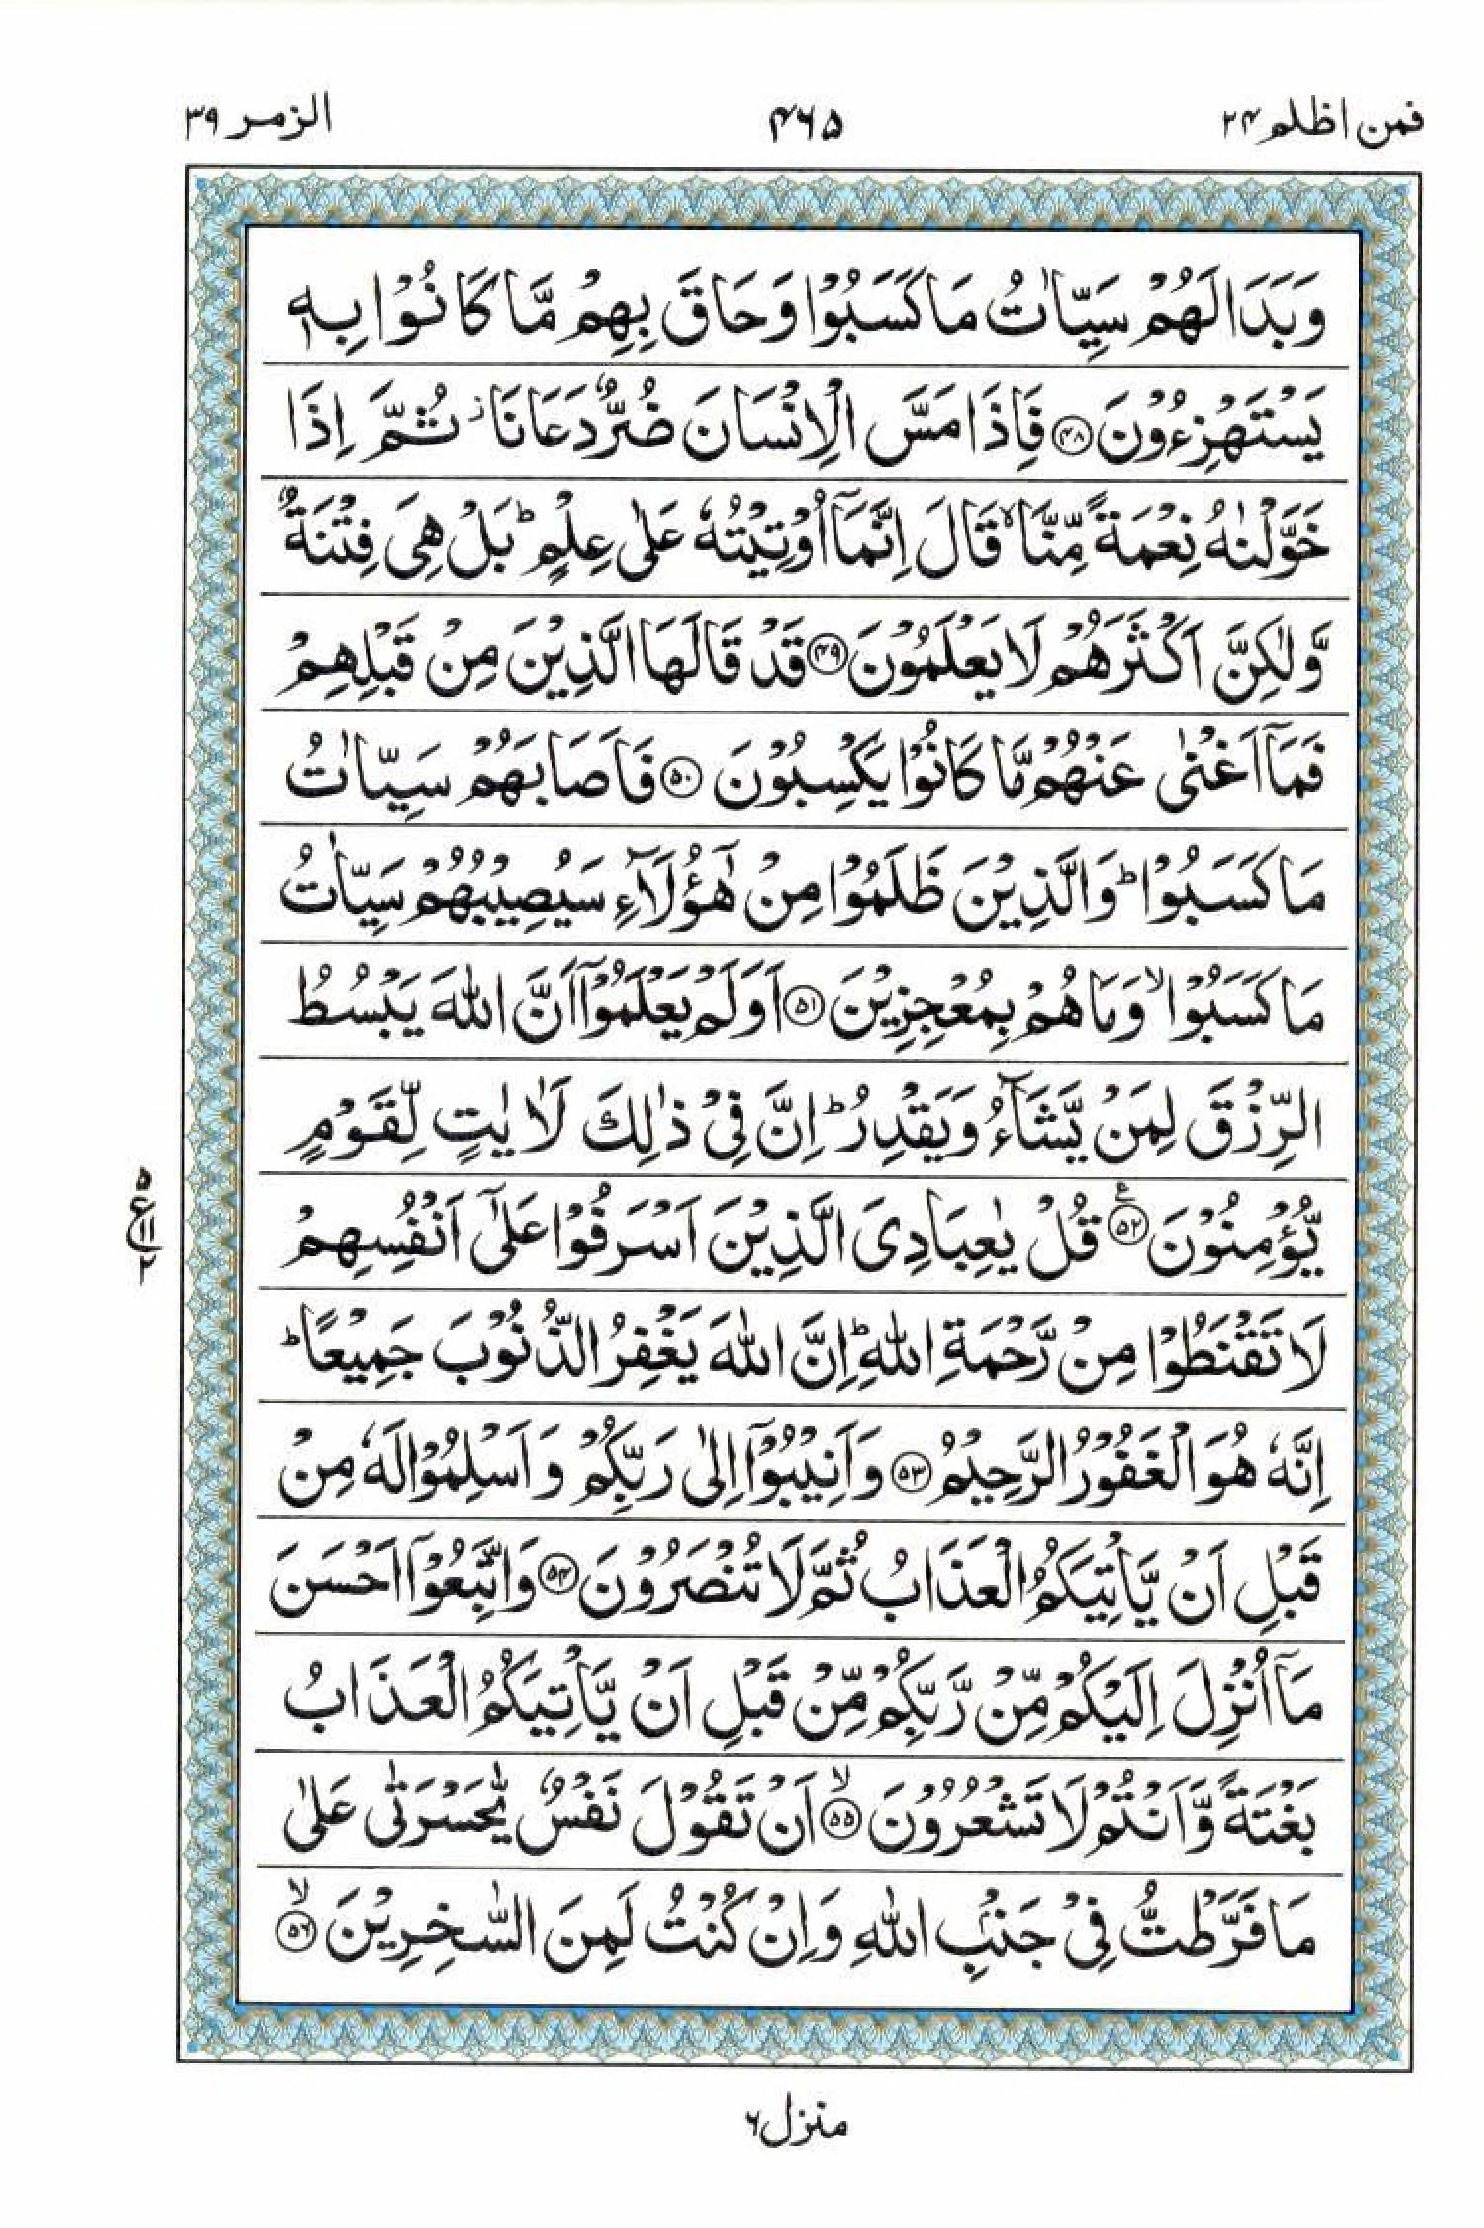 فمن اظلم ۲۴
۴۶۵
الزمر ۳۹
وَبَدَا لَهُمْ سَيِّاٰتُ مَا كَسَبُوْا وَحَاقَ بِهِمْ مَّا كَانُوْا بِهٖ
يَسْتَهْزِءُوْنَ ﴿۴۸﴾ فَاِذَا مَسَّ الْاِنْسَانَ ضُرٌّ دَعَانَا ز ثُمَّ اِذَا
خَوَّلْنٰهُ نِعْمَةً مِّنَّا ۙ قَالَ اِنَّمَآ اُوْتِيْتُهٗ عَلٰى عِلْمٍ ؕ بَلْ هِىَ فِتْنَةٌ
وَّلٰكِنَّ اَكْثَرَهُمْ لَا يَعْلَمُوْنَ ﴿۴۹﴾ قَدْ قَالَهَا الَّذِيْنَ مِنْ قَبْلِهِمْ
فَمَآ اَغْنٰى عَنْهُمْ مَّا كَانُوْا يَكْسِبُوْنَ ﴿۵۰﴾ فَاَصَابَهُمْ سَيِّاٰتُ
مَا كَسَبُوْا ؕ وَالَّذِيْنَ ظَلَمُوْا مِنْ هٰٓؤُلَآءِ سَيُصِيْبُهُمْ سَيِّاٰتُ
مَا كَسَبُوْا ۙ وَمَا هُمْ بِمُعْجِزِيْنَ ﴿۵۱﴾ اَوَلَمْ يَعْلَمُوْٓا اَنَّ اللّٰهَ يَبْسُطُ
الرِّزْقَ لِمَنْ يَّشَآءُ وَيَقْدِرُ ؕ اِنَّ فِىْ ذٰلِكَ لَاٰيٰتٍ لِّقَوْمٍ
يُّؤْمِنُوْنَ ﴿۵۲﴾ ع قُلْ يٰعِبَادِىَ الَّذِيْنَ اَسْرَفُوْا عَلٰٓى اَنْفُسِهِمْ
۵ ع ۱۱ ۲
لَا تَقْنَطُوْا مِنْ رَّحْمَةِ اللّٰهِ ؕ اِنَّ اللّٰهَ يَغْفِرُ الذُّنُوْبَ جَمِيْعًا ؕ
اِنَّهٗ هُوَ الْغَفُوْرُ الرَّحِيْمُ ﴿۵۳﴾ وَاَنِيْبُوْٓا اِلٰى رَبِّكُمْ وَاَسْلِمُوْا لَهٗ مِنْ
قَبْلِ اَنْ يَّاْتِيَكُمُ الْعَذَابُ ثُمَّ لَا تُنْصَرُوْنَ ﴿۵۴﴾ وَاتَّبِعُوْٓا اَحْسَنَ
مَآ اُنْزِلَ اِلَيْكُمْ مِّنْ رَّبِّكُمْ مِّنْ قَبْلِ اَنْ يَّاْتِيَكُمُ الْعَذَابُ
بَغْتَةً وَّاَنْتُمْ لَا تَشْعُرُوْنَ ﴿۵۵﴾ ۙ اَنْ تَقُوْلَ نَفْسٌ يّٰحَسْرَتٰى عَلٰى
مَا فَرَّطْتُّ فِىْ جَنْۢبِ اللّٰهِ وَاِنْ كُنْتُ لَمِنَ السّٰخِرِيْنَ ﴿۵۶﴾ ۙ
منزل ۶